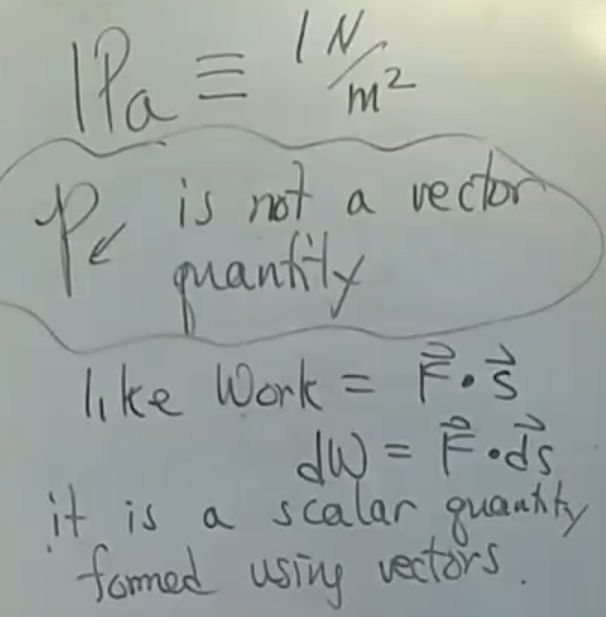 1Pa ≡ 1 N/m²
P is not a vector
quantity
like Work = F⃗ • s⃗
dW = F⃗ • d⃗s
it is a scalar quantity
formed using vectors.